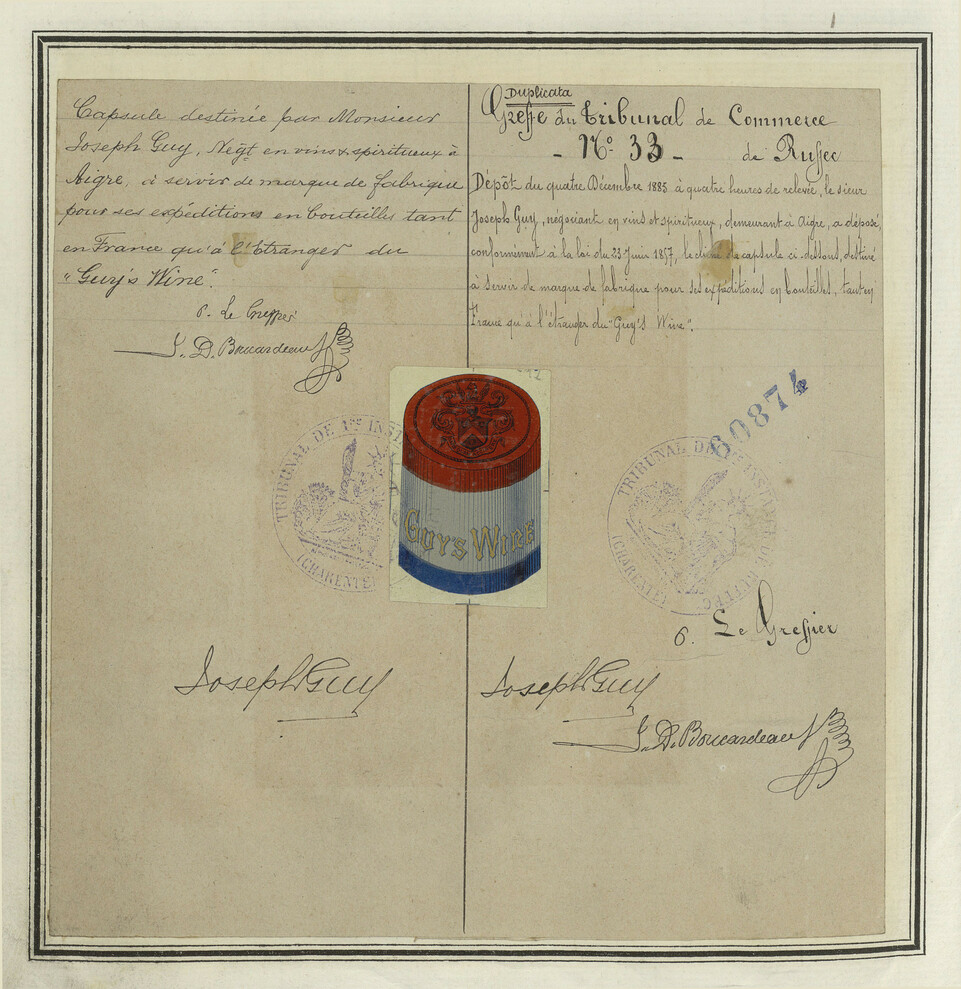 Capsule destinée par Monsieur
Joseph Guy, Négt en vins & spiritueux à
Aigre, à servir de marque de fabrique
pour ses expéditions en bouteilles tant
en France qu'à l'Etranger du
"Guy's Wine".
p. Le Greffier
J. D. Boucardeau
Duplicata
Greffe du Tribunal de Commerce
- No. 33 - de Ruffec
Dépôt du quatre Décembre 1885 à quatre heures de relevée, le sieur
Joseph Guy, négociant en vins et spiritueux, demeurant à Aigre, a déposé,
conformément à la loi du 23 Juin 1857, le cliché de capsule ci-dessous, destiné
à servir de marque de fabrique pour ses expéditions en bouteilles, tant en
France qu'à l'étranger du "Guy's Wine".
60874
TRIBUNAL DE 1re INST
(CHARENTE)
GUY'S WINE
TRIBUNAL DE 1re INST
(CHARENTE)
p. Le Greffier
Joseph Guy
Joseph Guy
J. D. Boucardeau